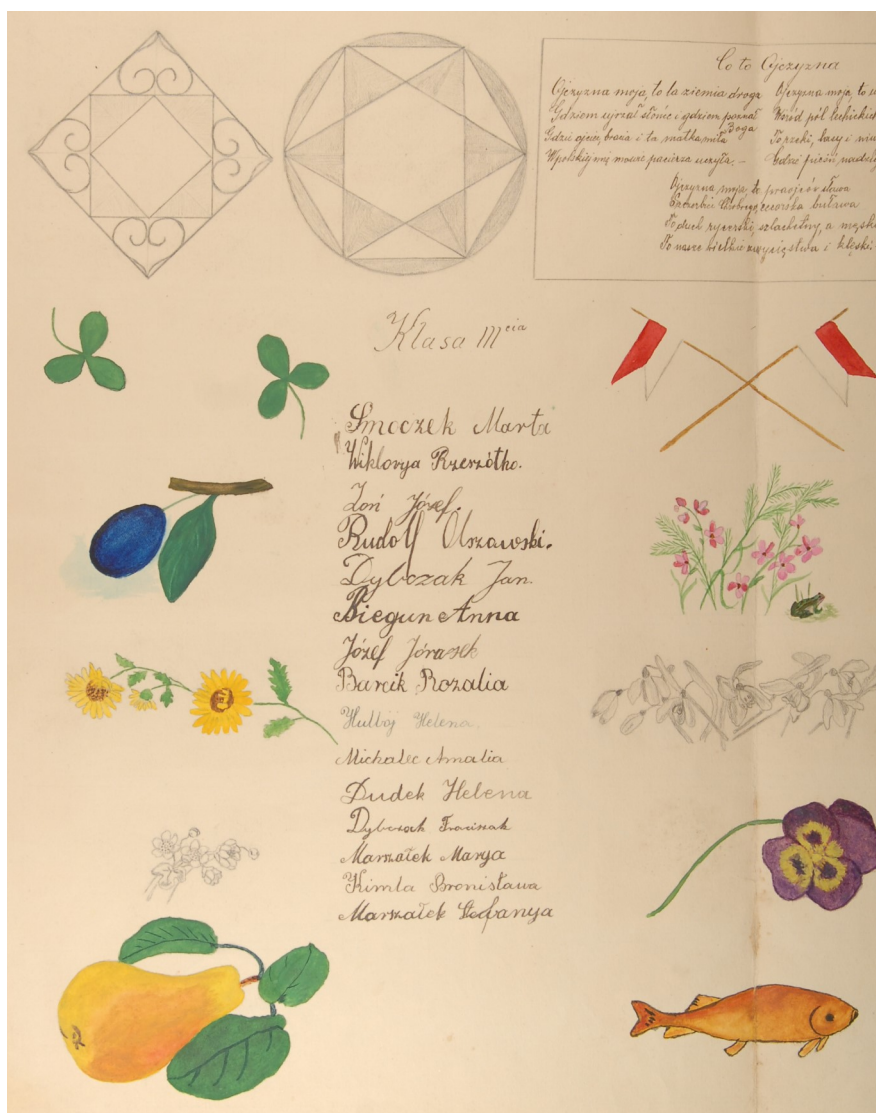 Co to Ojczyzna
Ojczyzna moja, to ta ziemia droga
Gdziem ujrzał słońce i gdziem poznał Boga
Gdzie ojciec, bracia i ta matka miła
W polskiej mej mowie pacierza uczyła. –
Ojczyzna moja, to
Wśród pól lechickich
To rzeki, lasy i
Gdzie pieśń
Ojczyzna moja, to praojców sława
Szczerbiec Chrobrego, cecorska buława
To duch rycerski, szlachetny, a męski
To nasze wielkie zwycięstwa i klęski.
Klasa III cia
Smoczek Marta
Wiktorya Rzerzótko.
Zoń Józef.
Rudolf Olszawski.
Dybczak Jan.
Biegun Anna
Józef Jórasek
Barcik Rozalia
Hulbój Helena.
Michalec Amalia
Dudek Helena
Dybczak Franciszek
Marszałek Marya
Kimla Bronisława
Marszałek Stefanya